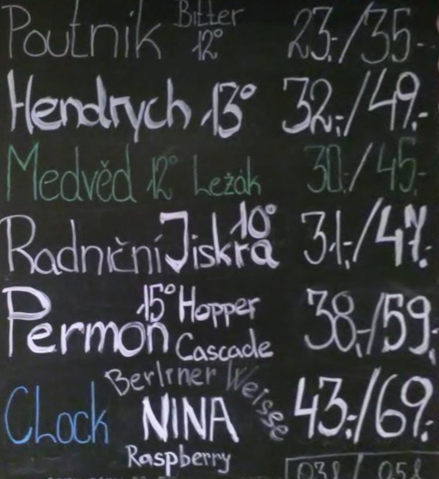 Poutník Bitter 12° 23.-/35.-
Hendrych 13° 32,-/49.-
Medvěd 12° Ležák 30,-/45.-
Radniční Jiskra 10° 31,-/47.-
Permon 15° Hopper Cascade 38,-/59,-
Clock Berliner Weisse NINA Raspberry 43,-/69.-
0,3l / 0,5l